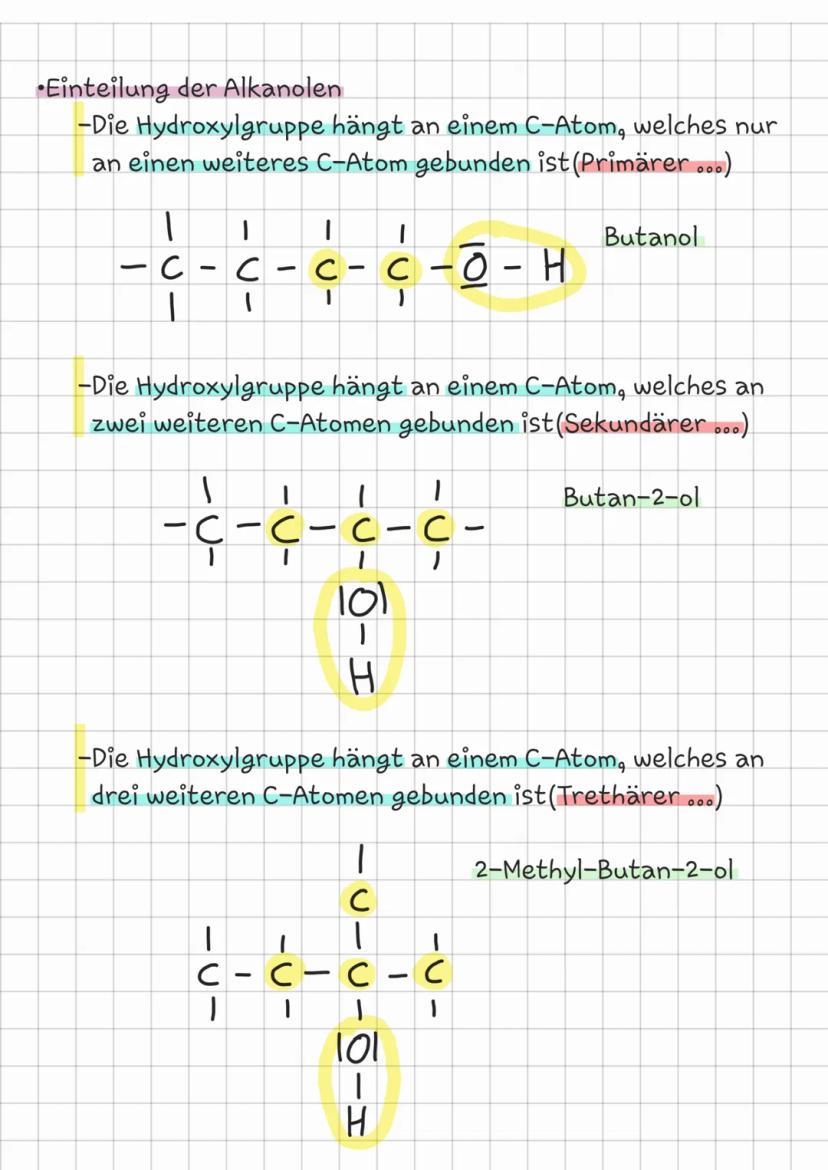 •Einteilung der Alkanolen
-Die Hydroxylgruppe hängt an einem C-Atom, welches nur
an einen weiteres C-Atom gebunden ist(Primärer ...)
Butanol
- C - C - C - C - O - H
-Die Hydroxylgruppe hängt an einem C-Atom, welches an
zwei weiteren C-Atomen gebunden ist(Sekundärer ...)
Butan-2-ol
- C - C - C - C -
|O|
H
-Die Hydroxylgruppe hängt an einem C-Atom, welches an
drei weiteren C-Atomen gebunden ist(Trethärer ...)
2-Methyl-Butan-2-ol
C
C - C - C - C
|O|
H